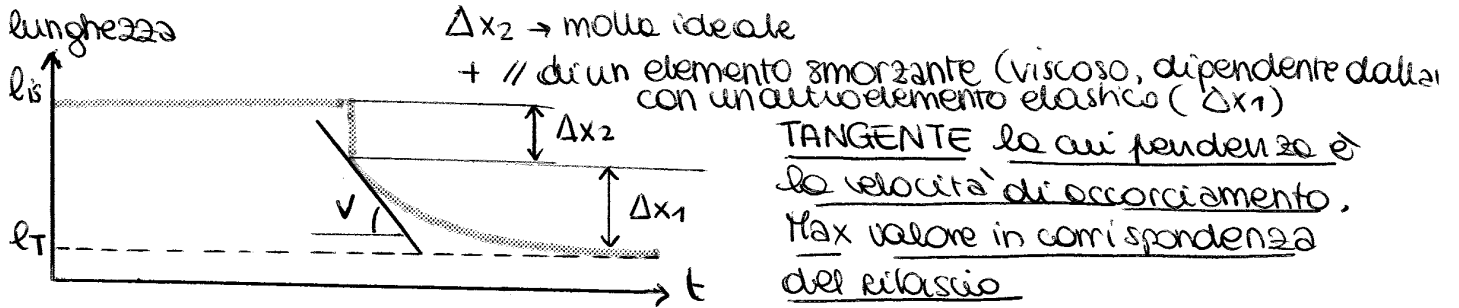 lunghezza
Δx2 → molla ideale
+ // di un elemento smorzante (viscoso, dipendente dalla
con un altro elemento elastico (Δx1)
lis
Δx2
TANGENTE la cui pendenza è
la velocità di accorciamento.
V
Δx1
Max valore in corrispondenza
lT
t
del rilascio